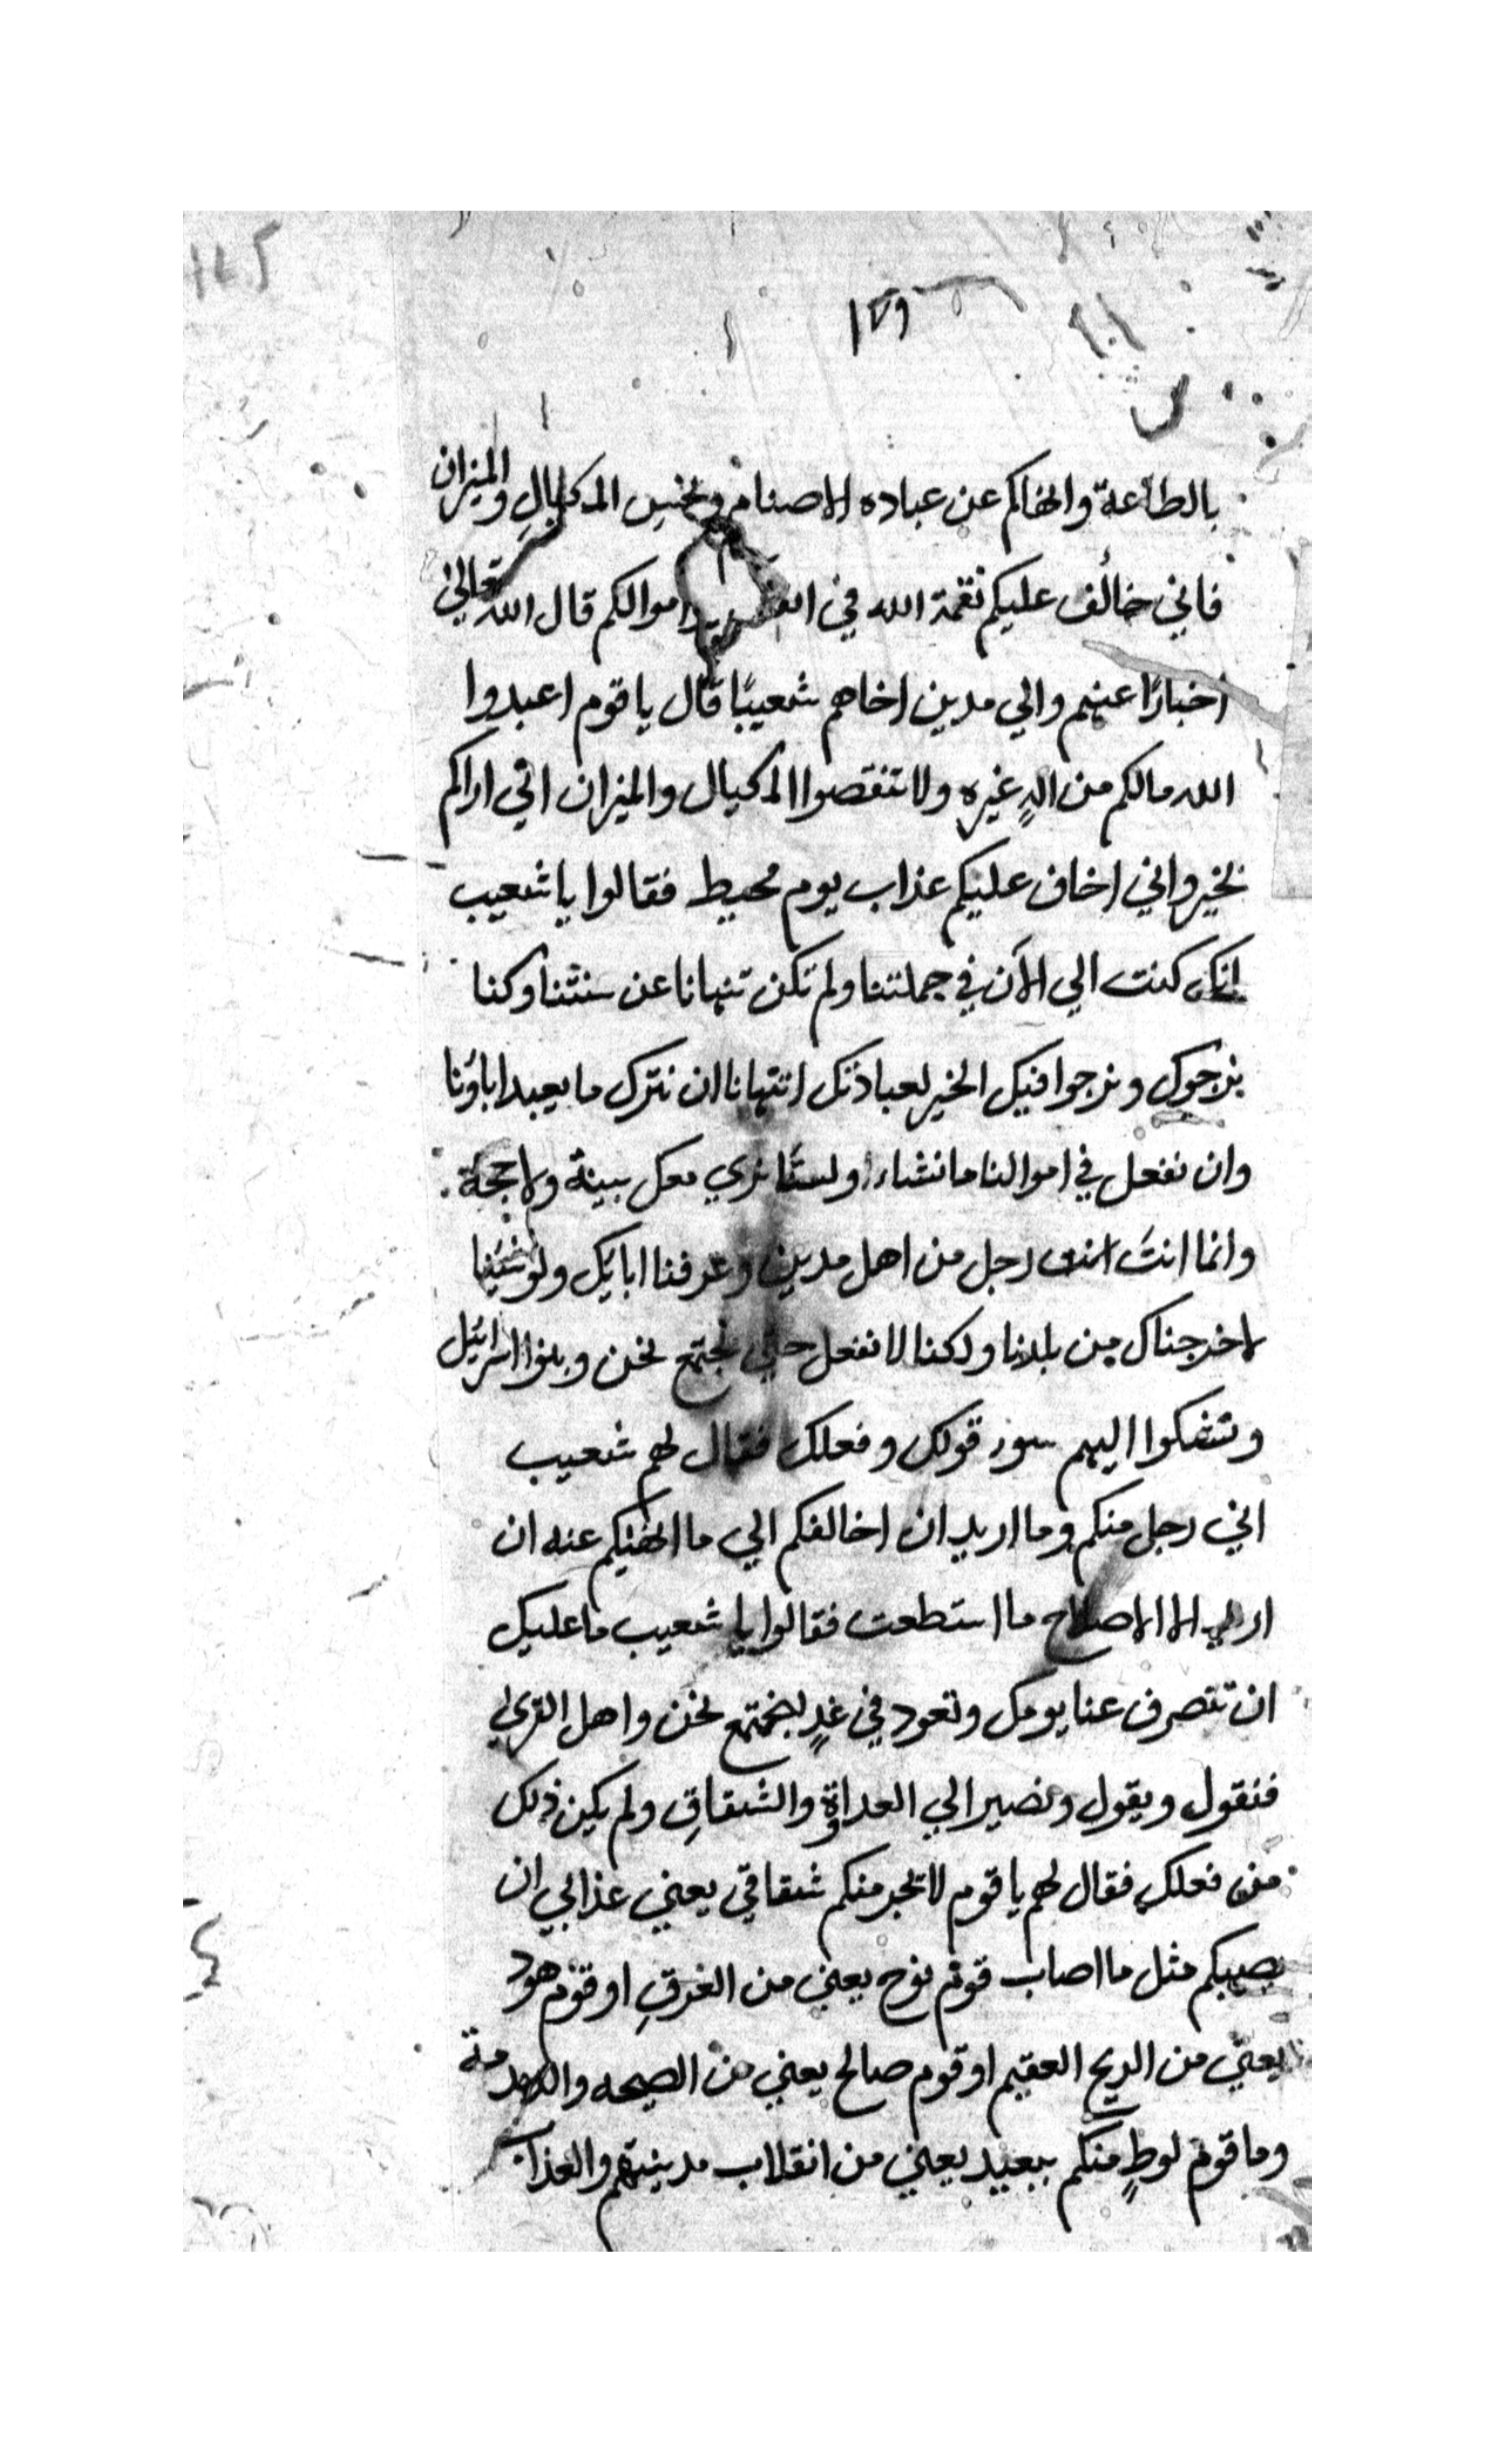 ١٧٩
بالطاعة وانهاكم عن عباده الاصنام وبخس المكيالِ والميزان
فاني خائف عليكم نقمة الله في اموالكم قال الله تعالى
اخبارًا عنهم والي مدين اخاهم شعيبًا قال يا قوم اعبدوا
الله مالكم من الهٍ غيره ولا تنقصوا المكيال والميزان اني اراكم
بخير واني اخاف عليكم عذاب يوم محيط فقالوا يا شعيب
انك كنت الي الآن في جملتنا ولم تكن تنهانا عن سنتنا وكنا
نرجوك ونرجوا فيك الخير لعبادتك اتنهانا ان نترك ما يعبد اباؤنا
وان نفعل في اموالنا ما نشاء ولسنا نري معك بينة ولا حجة
وانما انتَ رجل من اهل مدين وعرفنا ابائك ولو شئنا
لاخرجناك من بلدنا ولكنا لا نفعل حتي نجتمع نحن وبنوا اسرائيل
ونشكوا اليهم سوء قولك وفعلك فقال لهم شعيب
اني رجل منكم وما اريد ان اخالفكم الي ما انهيكم عنه ان
اريد الا الاصلاح ما استطعت فقالوا يا شعيب ما عليك
ان تنصرف عنا يومك وتعود في غدٍ لنجتمع نحن واهل القري
فنقول ويقول ونصير الي العداوة والشقاقِ ولم يكن ذلك
من فعلك فقال لهم يا قوم لا يجرمنكم شقاقي يعني عذابي ان
يصيبكم مثل ما اصاب قوم نوح يعني من الغرقِ او قوم هود
يعني من الريح العقيم او قوم صالح يعني من الصيحه
وما قوم لوطٍ منكم ببعيد يعني من انقلاب مدينتهم والعذاب